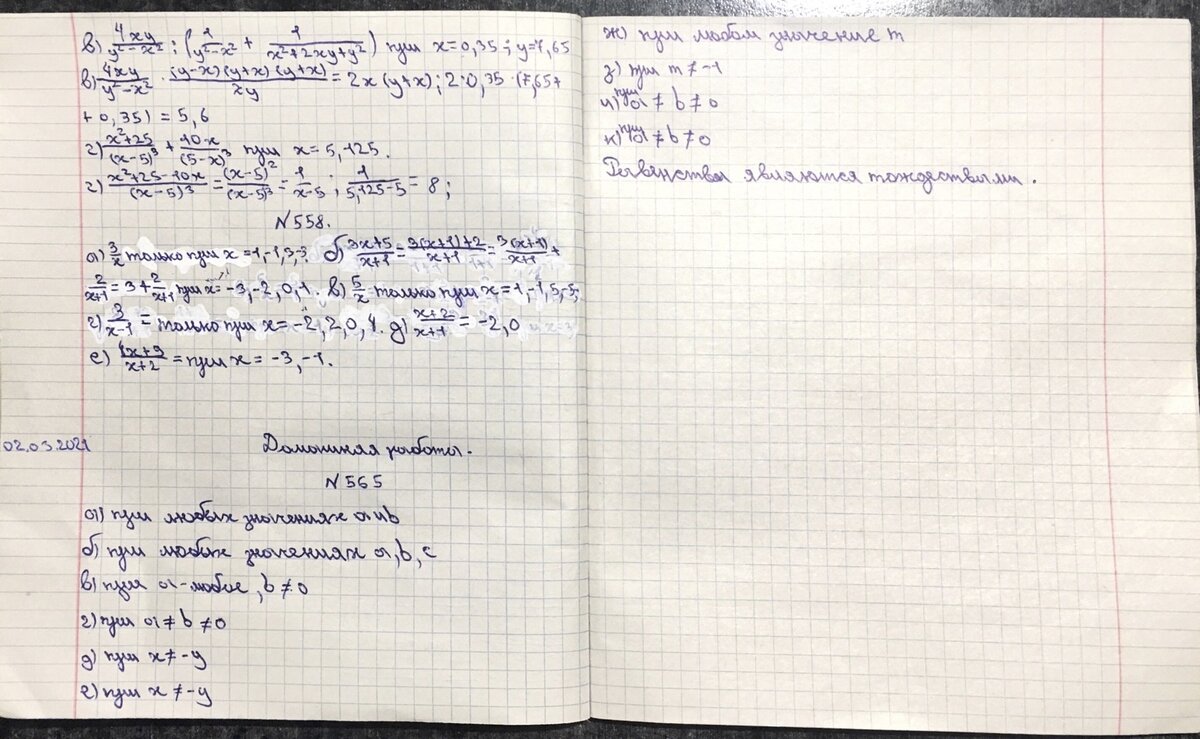 в) 4xy/(y²-x²) : (1/(y²-x²) + 1/(x²+2xy+y²)) при x=0,35; y=7,65
в) 4xy/(y²-x²) · (y-x)(y+x)(y+x)/2y = 2x(y+x); 2·0,35·(7,65+
+0,35) = 5,6
г) (x²+25)/(x-5)³ + 10x/(5-x)³ при x=5,125.
г) (x²+25-10x)/(x-5)³ = (x-5)²/(x-5)³ = 1/(x-5); 1/(5,125-5) = 8;
N558.
а) 3/x только при x=1,-1,3,-3. б) (3x+5)/(x+1) = (3(x+1)+2)/(x+1) = 3(x+1)/(x+1) +
2/(x+1) = 3+2/(x+1) при x=-3,-2,0,1. в) 5/x только при x=1,-1,5,-5;
г) 3/(x-1) = только при x=-2,2,0,4. д) (x+2)/(x+1) = -2,0
е) (4x+9)/(x+2) = при x = -3,-1.
02.03.2021 Домашняя работа.
N565
а) при любых значениях a и b
б) при любых значениях a, b, c
в) при a-любое, b≠0
г) при a≠b≠0
д) при x≠-y
е) при x≠-y
ж) при любом значение m
з) при m≠-1
и) при a≠b≠0
к) при a≠b≠0
Равенства являются тождествами.